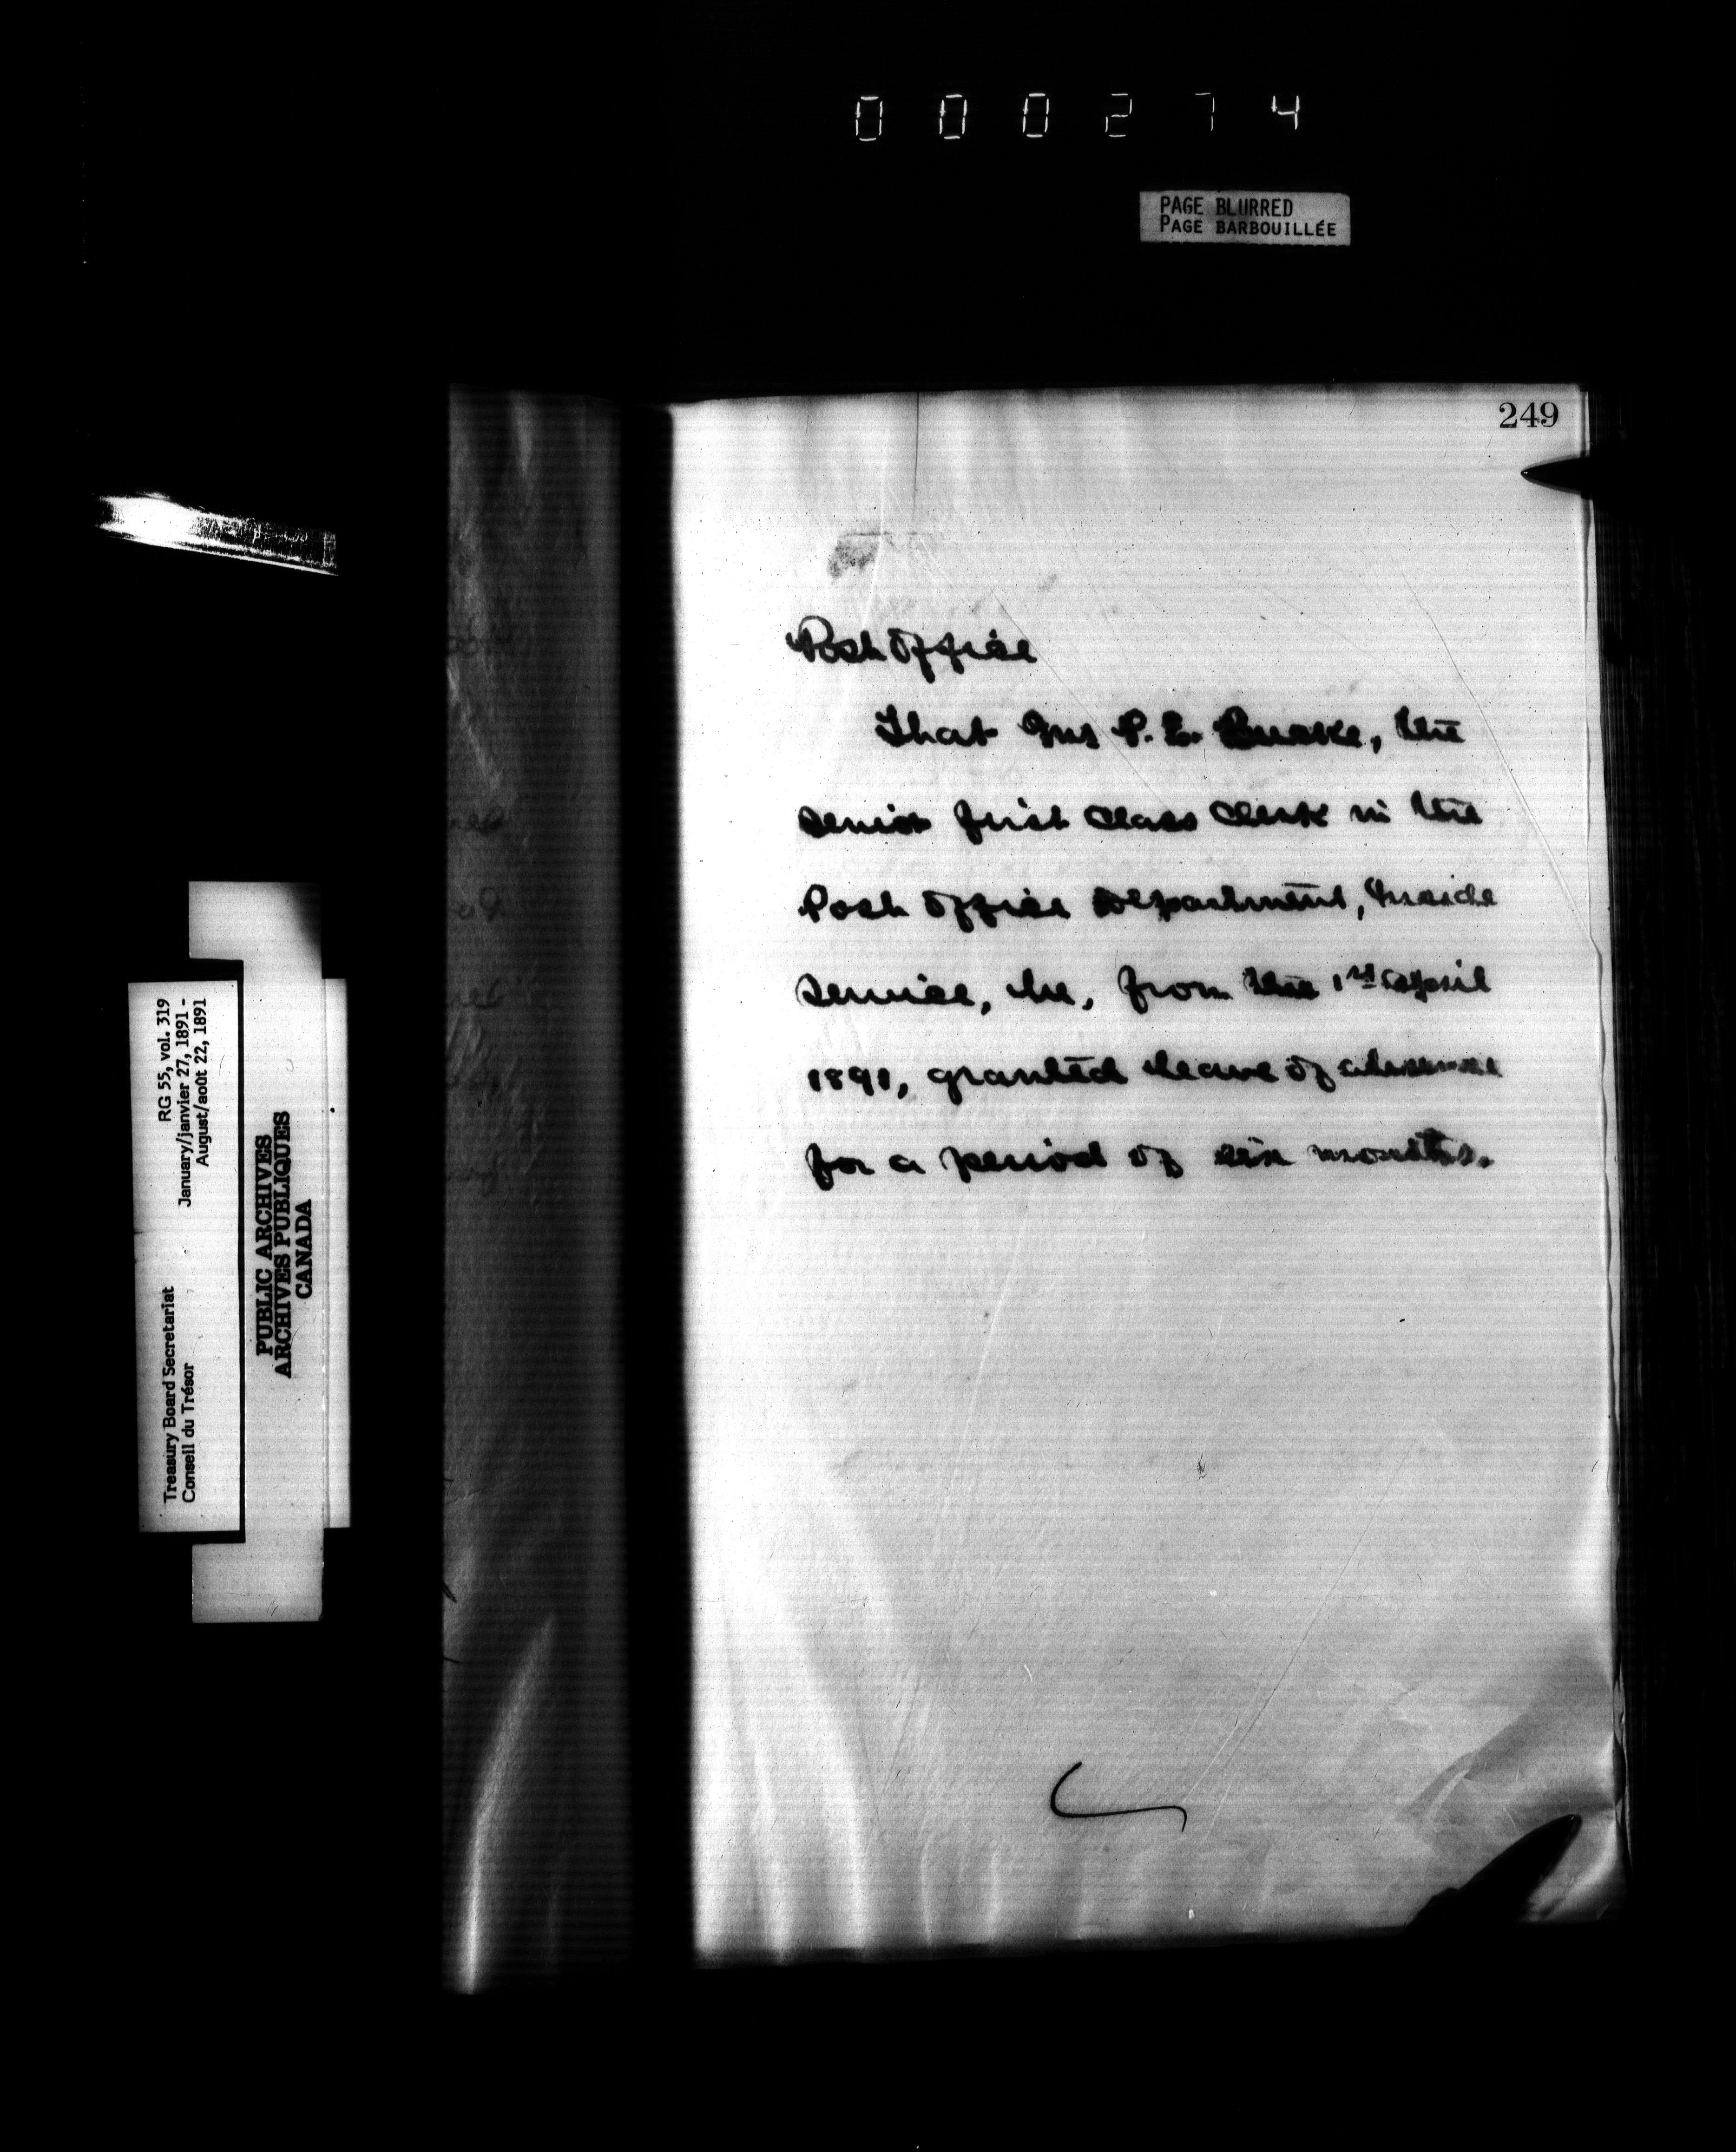 000274
PAGE BLURRED
PAGE BARBOUILLÉE
249
Post Office
That P. E. the
senior first class clerk in the
Post Office Department, Inside
Service, be, from the 1st April
1891, granted leave of absence
for a period of six months.
RG 55, vol. 319
January/janvier 27, 1891 -
August/août 22, 1891
Treasury Board Secretariat
Conseil du Trésor
PUBLIC ARCHIVES
ARCHIVES PUBLIQUES
CANADA